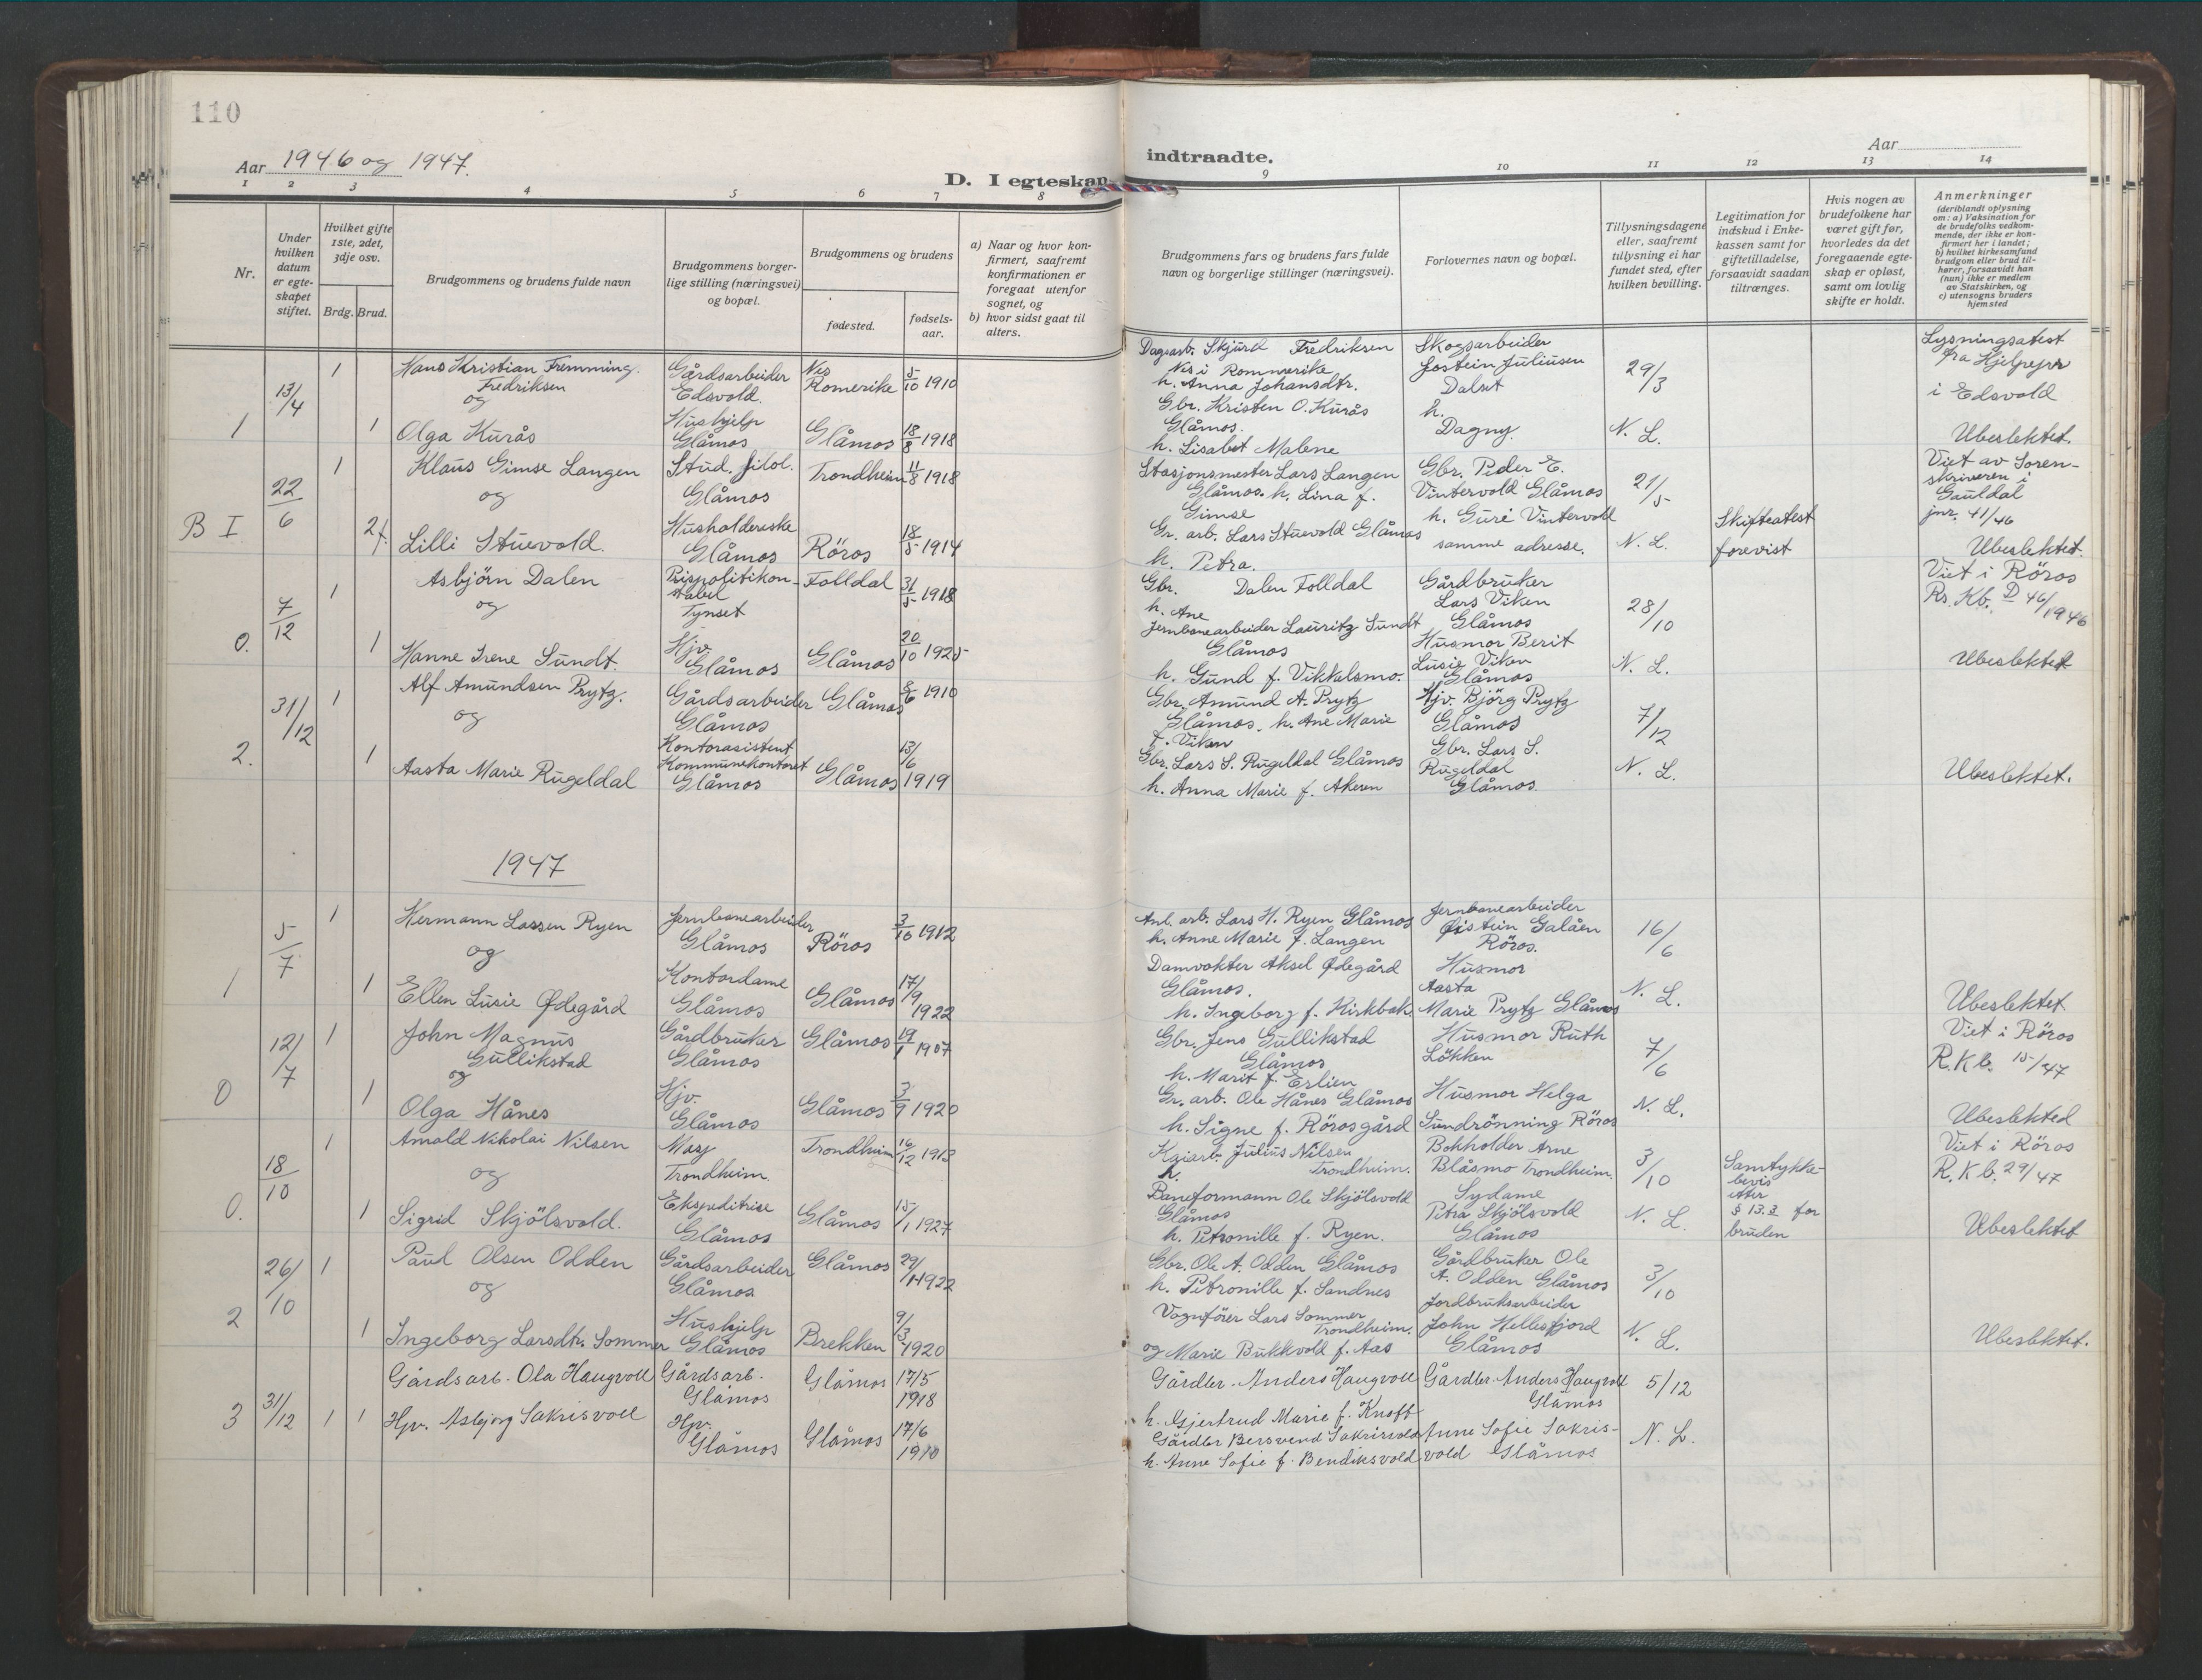 110
Aar 1946 og 1947.
D. I egteskap
1 2 3 4 5 6 7 8
Nr.
Under hvilken datum er egteskapet stiftet.
Hvilket gifte 1ste, 2det, 3dje osv.
Brdg. Brud.
Brudgommens og brudens fulde navn
Brudgommens borgerlige stilling (næringsvei) og bopæl.
Brudgommens og brudens
fødested.
fødselsaar.
a) Naar og hvor konfirmert, saafremt konfirmationen er foregaat utenfor sognet, og
b) hvor sidst gaat til alters.
1 13/4 1 Hans Kristian Fremming Gårdsarbeider Nes 5/10 1910
Fredriksen Edsvold. Romerike
og
1 Olga Kurås Hushjelp Glåmos Glåmos 18/8 1918
B I 22/6 1 Klaus Gimse Langen Stud. filol. Trondheim 11/8 1918
og Glåmos
2 f. Lilli Stuevold. Husholderske Glåmos Röros 18/5 1914
0. 7/12 1 Asbjörn Dalen Prispolitikonstabel Folldal 31/5 1918
og Tynset
1 Hanne Irene Sundt. Hjv. Glåmos Glåmos 20/10 1925
2. 31/12 1 Alf Amundsen Prytz. Gårdsarbeider Glåmos 1910
og Glåmos
1 Aasta Marie Rugeldal Kontorasistent Kommunekontoret Glåmos Glåmos 13/6 1919
1947
1 5/7 1 Hermann Lassen Ryen Jernbanearbeider 3/10 1912
og Glåmos Röros
1 Ellen Lusie Ødegård Kontordame Glåmos Glåmos 17/9 1922
0 12/7 1 John Magnus Gårdbruker Glåmos 19/1 1907
Gullikstad Glåmos
og
1 Olga Hånes Hjv. Glåmos Glåmos 3/9 1920
0. 18/10 1 Arnold Nikolai Nilsen Trondheim 16/12 1913
og Trondheim.
1 Sigrid Skjölsvold. Ekspeditrise Glåmos Glåmos 15/1 1927
2 26/10 1 Paul Olsen Odden Gårdsarbeider Glåmos 29/11 1922
og Glåmos
1 Ingeborg Larsdtr. Sommer Hushjelp Glåmos Brekken 9/3 1920
3 31/12 1 1 Gårdsarb. Ola Haugvoll Gårdsarb. Glåmos Glåmos 17/5 1918
Hjv. Asbjørg Sakrisvoll Hjv. Glåmos Glåmos 17/6 1910
indtraadte.
Aar
9 10 11 12 13 14
Brudgommens fars og brudens fars fulde navn og borgerlige stillinger (næringsvei).
Forlovernes navn og bopæl.
Tillysningsdagene eller, saafremt tillysning ei har fundet sted, efter hvilken bevilling.
Legitimation for indskud i Enkekassen samt for giftetilladelse, forsaavidt saadan tiltrænges.
Hvis nogen av brudefolkene har været gift før, hvorledes da det foregaaende egteskap er opløst, samt om lovlig skifte er holdt.
Anmerkninger
(deriblandt oplysning om: a) Vaksination for de brudefolks vedkommende, der ikke er konfirmert her i landet; b) hvilket kirkesamfund brudgom eller brud tilhører, forsaavidt han (hun) ikke er medlem av Statskirken, og c) utensogns bruders hjemsted
Dagarb. Fredriksen Skogsarbeider Lysningsatest
Nes i Rommerike Jostein Juliussen 29/3 fra
h. Anna Johansdtr. i Edsvold
Gbr. Kristen O. Kurås h.
Glåmos. Dagny. N. L. Ubeslektet.
h. Lisabet Malene
Stasjonsmester Lars Langen Gbr. Peder E. Viet av Soren-
Glåmos. h. Lina f. Vintervold Glåmos 21/5 skriveren i Gauldal
Gimse h. Guri Vintervoll jnr. 41/46
Gr. arb. Lars Stuevold Glåmos samme adresse. N. L. Skifteatest forevist Ubeslektet.
h. Petra.
Gbr. Dalen Folldal Gårdbruker Viet i Röros
h. Ane Lars Viken 28/10 Rs. Kb. D 46/1946
Jernbanearbeider Lauritz Sundt Glåmos
Glåmos Husmor Berit
h. Gund f. Vikkalsmo. Lusie Viken Glåmos N. L. Ubeslektet
Gbr. Amund A. Prytz Hjv. Björg Prytz
Glåmos. h. Ane Marie Glåmos 7/12
f. Viken Gbr. Lars S.
Gbr. Lars S. Rugeldal Glåmos Rugeldal N. L. Ubeslektet.
h. Anna Marie f. Akeren Glåmos
Anl. arb. Lars H. Ryen Glåmos Jernbanearbeider
h. Anne Marie f. Langen Øistein Galåen 16/6
Röros.
Damvokter Aksel Ødegård Husmor
Glåmos. Aasta N. L. Ubeslektet.
h. Ingeborg f. Kirkbak. Marie Prytz Glåmos
Gbr. Jens Gullikstad Husmor Ruth Viet i Röros
Glåmos Lökken 7/6 R.K.b. 15/47
h. Marit f. Erlien
Gr. arb. Ole Hånes Glåmos Husmor Helga N. L. Ubeslekted
h. Signe f. Rörosgård Sundrönning Röros
Kaiarb. Julius Nilsen Bokholder Arne Viet i Röros
h. Trondheim. Blåsmo Trondheim. 3/10 Samtykkebevis R.K.b. 29/47
Baneformann Ole Skjölsvold Sydame etter
Glåmos Petra Skjölsvold N. L. § 13.3 for
h. Petronille f. Ryen. Glåmos bruden Ubeslektet
Gbr. Ole A. Odden Glåmos Gårdbruker Ole
h. Petronille f. Sandnes A. Odden Glåmos 3/10
Vognförer Lars Sommer Jordbruksarbeider
Trondheim. John Hellesfjord N. L. Ubeslektet.
og Marie Bukkvold f. Aas Glåmos
Gårdbr. Anders Haugvoll Gårdbr. Anders Haugvoll 5/12
Glåmos
h. Gjertrud Marie f. Knoff
Gårdbr Bersvend Sakrisvold Anne Sofie Sakris- N. L.
h. Anne Sofie f. Bendiksvold vold Glåmos